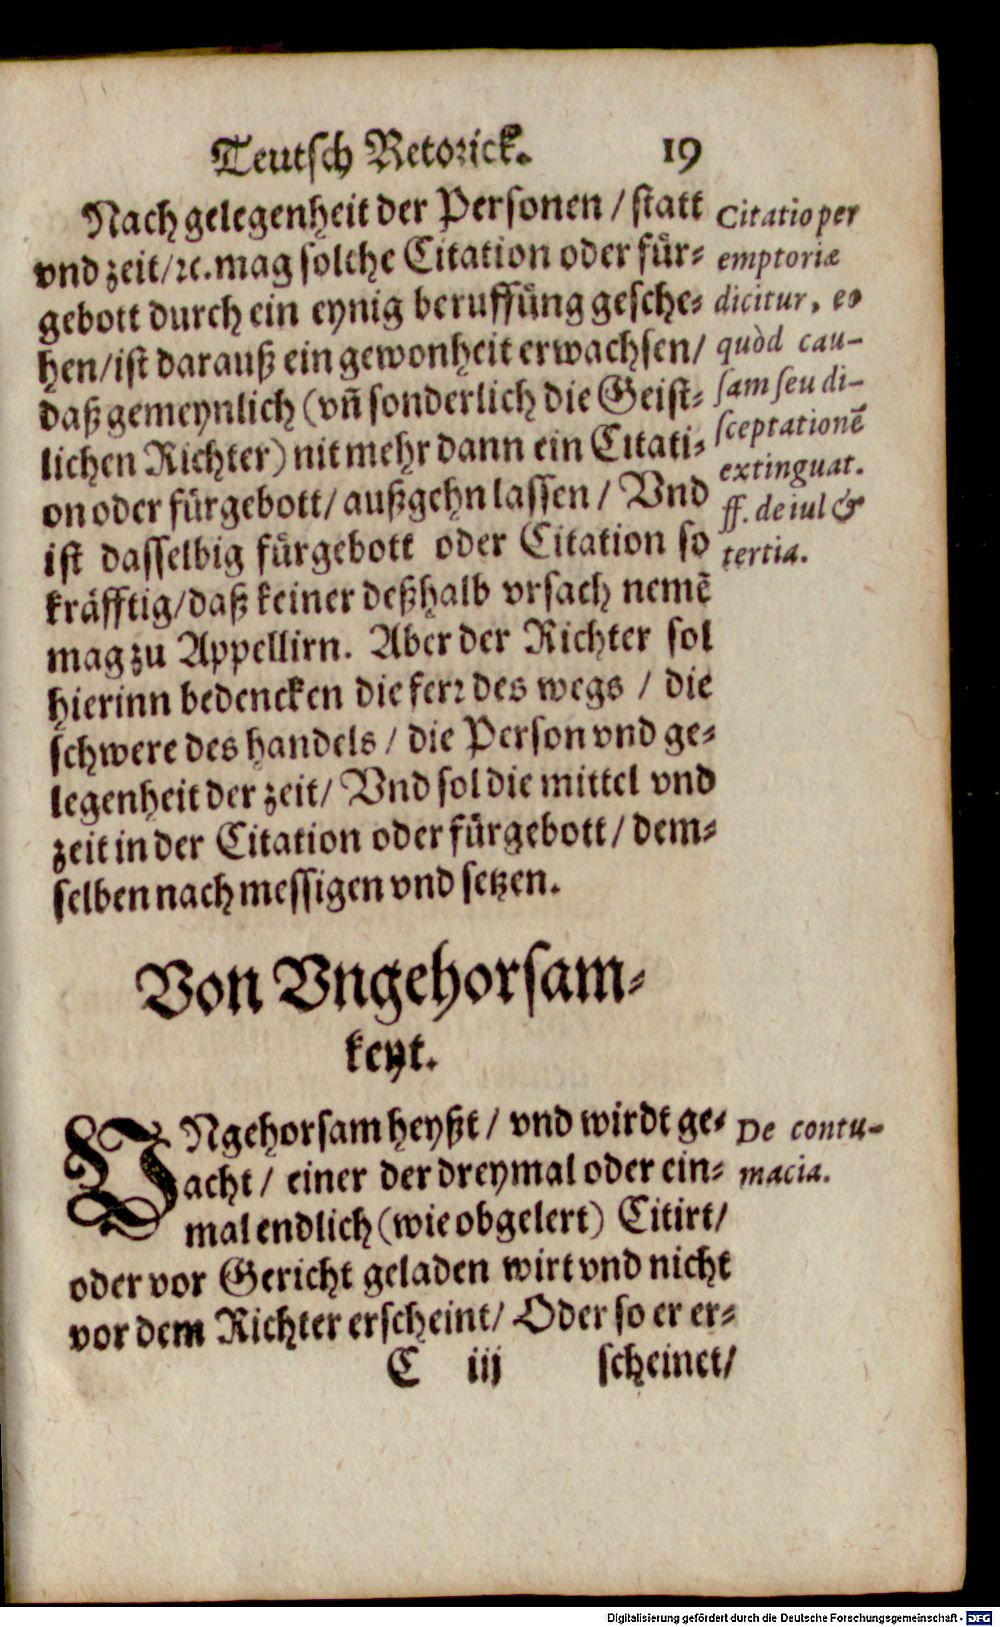 Teutsch Retorick. 19
Nach gelegenheit der Personen / statt
vnd zeit / ꝛc. mag solche Citation oder für⸗
gebott durch ein eynig beruffüng gesche⸗
hen / ist darauß ein gewonheit erwachsen /
daß gemeynlich (vñ sonderlich die Geist⸗
lichen Richter) nit mehr dann ein Citati⸗
on oder fürgebott / außgehn lassen / Vnd
ist dasselbig fürgebott oder Citation so
kräfftig / daß keiner deßhalb vrsach nemẽ
mag zu Appellirn. Aber der Richter sol
hierinn bedencken die ferꝛ des wegs / die
schwere des handels / die Person vnd ge⸗
legenheit der zeit / Vnd sol die mittel vnd
zeit in der Citation oder fürgebott / dem⸗
selben nach messigen vnd setzen.
Citatio per
emptoriæ
dicitur, eo
quòd cau-
sam seu di-
sceptationẽ
extinguat.
ff. de iul &
tertia.
Von Vngehorsam⸗
keyt.
VNgehorsam heyßt / vnd wirdt ge⸗
acht / einer der dreymal oder ein⸗
mal endlich (wie obgelert) Citirt /
oder vor Gericht geladen wirt vnd nicht
vor dem Richter erscheint / Oder so er er⸗
De contu-
macia.
C iij scheinet /
Digitalisierung gefördert durch die Deutsche Forschungsgemeinschaft - DFG